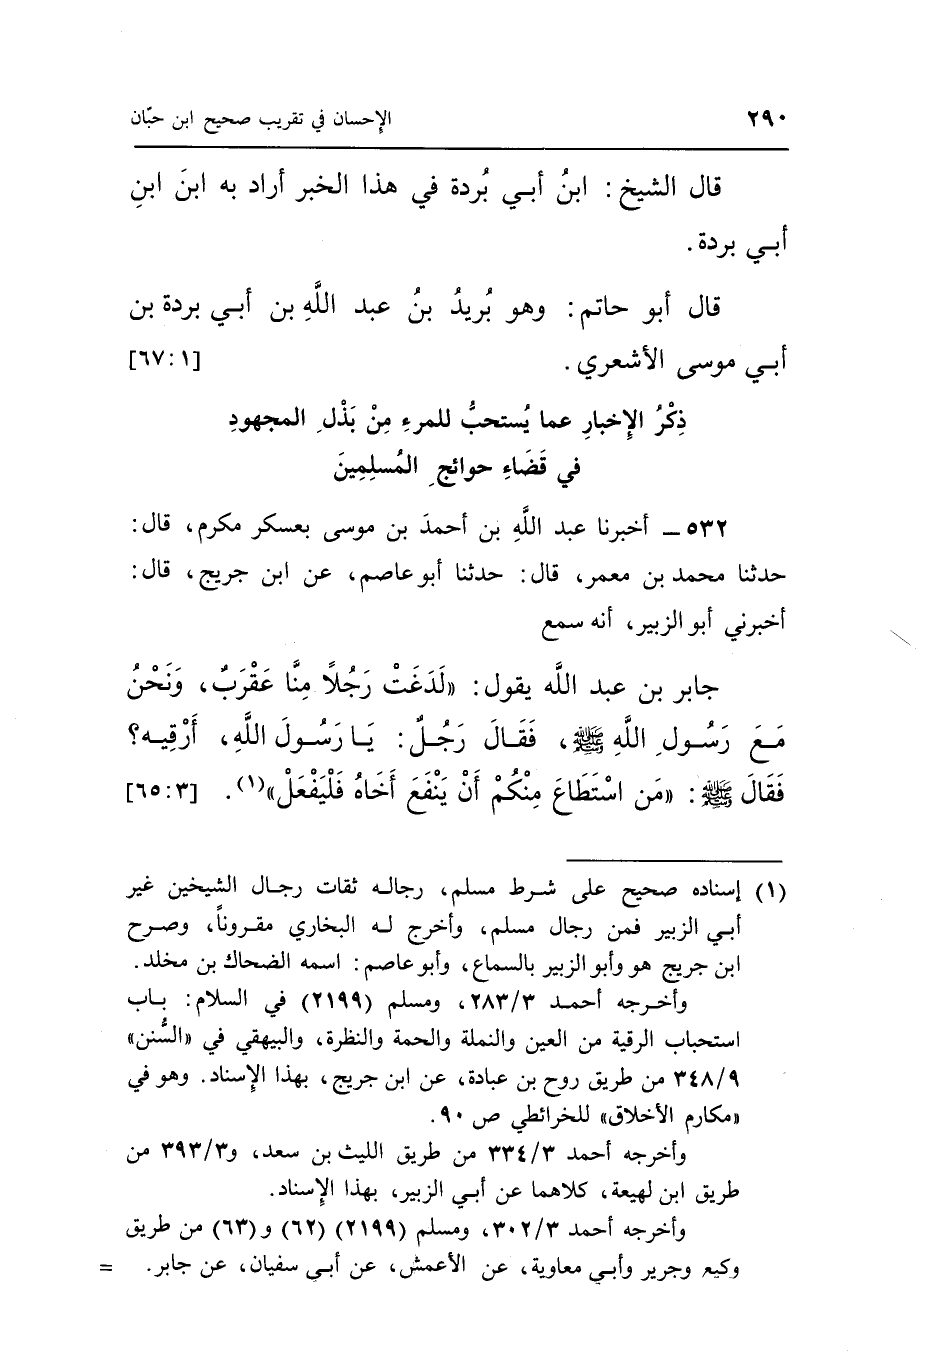 ٢٩٠ الإحسان في تقريب صحيح ابن حبّان
قال الشيخ: ابنُ أبي بُردة في هذا الخبر أراد به ابنَ ابنِ
أبي بردة.
قال أبو حاتم: وهو بُريدُ بنُ عبد اللَّهِ بن أبي بردة بن
أبي موسى الأشعري. [٦٧:١]
ذِكْرُ الإِخبارِ عما يُستحبُّ للمرءِ مِنْ بَذْلِ المجهودِ
في قَضَاءِ حوائجِ المُسلِمِينَ
٥٣٢ ــ أخبرنا عبد اللَّهِ بن أحمدَ بن موسى بعسكر مكرم، قال:
حدثنا محمد بن معمر، قال: حدثنا أبو عاصم، عن ابن جريج، قال:
أخبرني أبو الزبير، أنه سمع
جابر بن عبد اللَّه يقول: «لَدَغَتْ رَجُلاً مِنَّا عَقْرَبٌ، وَنَحْنُ
مَعَ رَسُولِ اللَّهِ ﷺ، فَقَالَ رَجُلٌ: يَا رَسُولَ اللَّهِ، أَرْقِيهِ؟
فَقَالَ ﷺ: «مَن اسْتَطَاعَ مِنْكُمْ أَنْ يَنْفَعَ أَخَاهُ فَلْيَفْعَلْ»(١). [٦٥:٣]
(١) إسناده صحيح على شرط مسلم، رجاله ثقات رجال الشيخين غير
أبي الزبير فمن رجال مسلم، وأخرج له البخاري مقروناً، وصرح
ابن جريج هو وأبو الزبير بالسماع، وأبو عاصم: اسمه الضحاك بن مخلد.
وأخرجه أحمد ٢٨٣/٣، ومسلم (٢١٩٩) في السلام: باب
استحباب الرقية من العين والنملة والحمة والنظرة، والبيهقي في «السُّنن»
٣٤٨/٩ من طريق روح بن عبادة، عن ابن جريج، بهذا الإِسناد. وهو في
«مكارم الأخلاق» للخرائطي ص ٩٠.
وأخرجه أحمد ٣٣٤/٣ من طريق الليث بن سعد، و٣٩٣/٣ من
طريق ابن لهيعة، كلاهما عن أبي الزبير، بهذا الإِسناد.
وأخرجه أحمد ٣٠٢/٣، ومسلم (٢١٩٩) (٦٢) و(٦٣) من طريق
وكيع وجرير وأبي معاوية، عن الأعمش، عن أبي سفيان، عن جابر. =